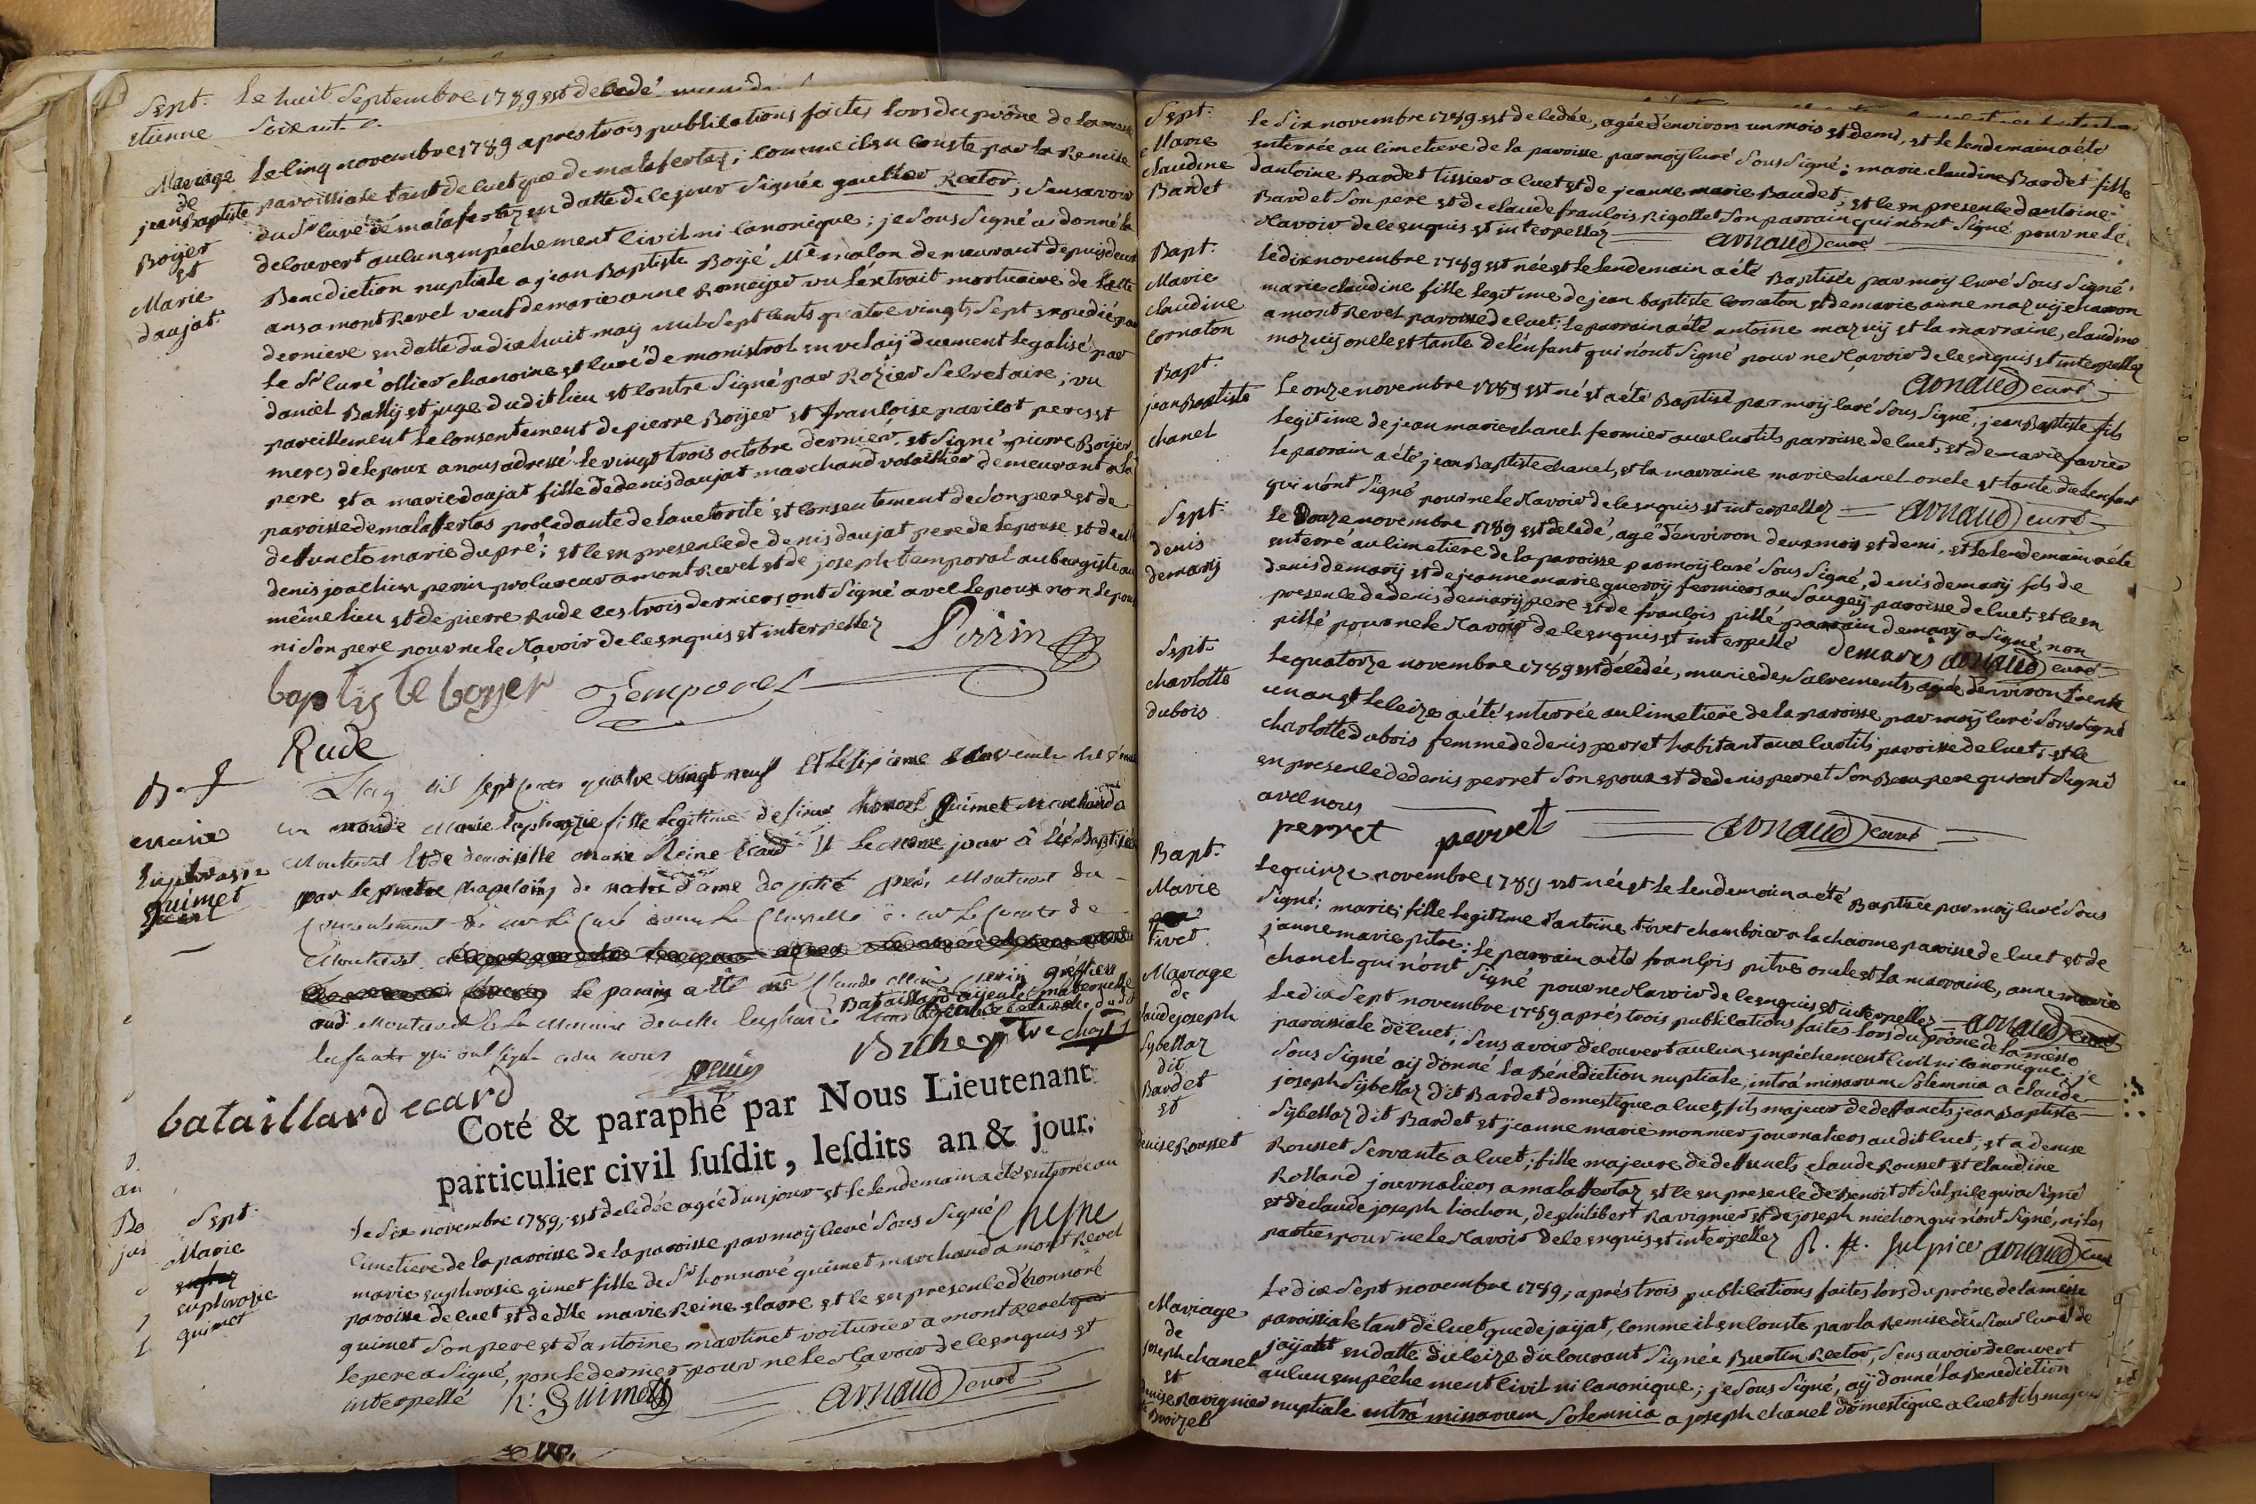 Sept. Le huit Septembre 1789 est decedé
etienne Soixant
Mariage
de
jean Baptiste
Boijer
et
Marie
daujat.
Le cinq novembre 1789 apres trois publications faites Lors du prône de La messe
paroissiale tant de cuet que de malafertaz; comme il en conste par la Remise
du Sr curé de malafertaz en datte de ce jour Signée gauthier Rector, Sans avoir
decouvert aucun empêchement civil ni canonique; je Sous Signé ai donné la
Benediction nuptiale a jean Baptiste Boijé Me maçon demeurant depuis deux
ans a montRevel veuf de marie anne Romeijer vu L'extrait mortuaire de cette
derniere en datte du dix huit maij mil Sept cents quatre vingt Sept expedié par
Le Sr curé ollier chanoine et curé de monistrol en velaij duement Legalisé par
daniel Bassij et juge dudit Lieu et contre Signé par Rozier Secretaire; vu
pareillement Le consentement de pierre Boijer et françoise pavilot peres et
meres de Lepoux a nous adressé Le vingt trois octobre dernier, et Signé pierre Boijer
pere et a marie daujat fille de denis daujat marchand volaillier demeurant a La
paroisse de malaffertas procedante de Lautorité et consentement de Son pere et de
deffuncte marie dupré; et ce en presence de denis daujat pere de Lepouse et de
denis joachim perrin procureur a montRevel et de joseph temporal aubergiste au
même lieu et de pierre Rude ces trois derniers ont Signé avec Lepoux non Lepouse
ni Son pere pour ne le Sçavoir de ce enquis et interpellez Perrin
baptiste boyer Temporal
Rude
marie
Euphrasie
guimet
L'an mil sept cent quatre vingt neuf Et Le sixieme Novembre est venue
au monde Marie Euphrazie fille Legitime de sieur honoré guimet Marchand a
Montrevel Et de demoiselle Marie Reine Ecard Et Le Meme jour à été Baptisée
par Le pretre Chapelain de notre dame de pitié près Montrevel du
Consentement de Mr Le Curé
Montrevel
Le parain a été Mr Claude Marie Perrin greffier
audit Montrevel Et La Maraine demoiselle Euphrasie Bataillard aijeule Maternelle
Lenfante qui ont signé avec nous
perrin Buthe ptre chap.
bataillard ecard
Coté & paraphé par Nous Lieutenant
particulier civil fufdit, lefdits an & jour.
Chesne
Sept.
Marie
euphrasie
guimet
Le Six novembre 1789, est decedée agée d'un jour et Le lendemain a été enterrée au
Cimetiere de la paroisse de la paroisse par moij curé Sous Signé
marie euphrasie guimet fille de Sr honnoré guimet marchand a montRevel
paroisse de cuet et de dlle marie Reine et ce en presence d'honnoré
guimet Son pere et d'antoine martinet voiturier a montRevel
Le pere a Signé, non Le dernier pour ne le Sçavoir de ce enquis et
interpellé h: Guimet arnaud curé
Sept.
Marie
claudine
Bardet
Le Six novembre 1789 est decedée, agée d'environ un mois et demi, et Le Lendemain a été
enterrée au cimetiere de la paroisse par moij curé Sous Signé; marie claudine Bardet fille
d'antoine Bardet tissier a cuet et de jeanne marie Baudet, et ce en presence d'antoine
Bardet Son pere et de claude françois Rigollet Son parrain qui n'ont Signé pour ne Le
Sçavoir de ce enquis et interpellez arnaud curé
Bapt.
Marie
claudine
Cornaton
Le dix novembre 1789 est née et Le Lendemain a été Baptisée par moij curé Sous Signé;
marie claudine fille Legitime de jean baptiste Cornaton et de marie anne mazuij charron
a montRevel paroisse de cuet; Le parrain a été antoine mazuij et La marraine, claudine
mazuij oncle et tante de L'enfant qui n'ont Signé pour ne Sçavoir de ce enquis et interpellez
arnaud curé
Bapt.
jean Baptiste
chanel
Le onze novembre 1789 est né et a été Baptisé par moij curé Sous Signé, jean Baptiste fils
Legitime de jean marie chanel fermier aux curtils paroisse de cuet, et de marie favier
Le parrain a été jean Baptiste chanel, et La marraine marie chanel oncle et tante de Lenfant
qui n'ont Signé pour ne le Sçavoir de ce enquis et interpellez arnaud curé
Sept.
denis
demarij
Le Douze novembre 1789 est decedé, agé d'environ deux mois et demi, et Le lendemain a été
enterré au cimetiere de la paroisse par moij curé Sous Signé, denis demarij fils de
denis demarij et de jeanne marie guerrij fermiers au Saugeij paroisse de cuet, et ce en
presence de denis demarij pere et de françois pillé parrain demarij a Signé, non
pillé pour ne le Sçavoir de ce enquis et interpellé demares arnaud curé
Sept.
charlotte
dubois
Le quatorze novembre 1789 est decedée, munie des Sacrements, agée d'environ trente
un an et Le Seize a été enterrée au cimetiere de la paroisse par moij curé Sous Signé
charlotte dubois femme de denis perret habitant aux curtils paroisse de cuet, et ce
en presence de denis perret Son epoux et de denis perret Son Beau pere qui ont Signé
avec nous
perret perret arnaud curé
Bapt.
Marie
tivet
Le quinze novembre 1789 est née et Le Lendemain a été Baptisée par moij curé Sous
Signé; marie fille Legitime d'antoine tivet chambrier a la charme paroisse de cuet et de
jeanne marie pitre; Le parrain a été françois pitre oncle et La marraine, anne marie
chanel qui n'ont Signé pour ne Sçavoir de ce enquis et interpellez arnaud curé
Mariage
de
claude joseph
Sybellaz
dit
Bardet
et
denise Rousset
Le dix Sept novembre 1789 après trois publications faites Lors du prône de La messe
paroissiale de cuet; Sans avoir découvert aucun empêchement civil ni canonique; je
Sous Signé aij donné la Bénediction nuptiale intrà missarum Solemnia a claude
joseph Sybellaz dit Bardet domestique a cuet, fils majeur de deffuncts jean Baptiste
Sybellaz dit Bardet et jeanne marie monnier journaliers audit cuet; et a denise
Rousset Servante a cuet; fille majeure de deffuncts claude Rousset et claudine
Rolland journaliers a malaffertaz et ce en presence de Benoit St Sulpice qui a Signé
et de claude joseph Liochon, de philibert Ravignier et de joseph michon qui n'ont Signé, ni Les
parties pour ne le Sçavoir de ce enquis et interpellez St. Sulpice arnaud curé
Mariage
de
joseph chanel
et
denise Ravignier
Le dix Sept novembre 1789, après trois publications faites Lors du prône de la messe
paroissiale tant de cuet que de jaijat, comme il en conste par la Remise du Sieur curé de
jaijatt en datte du Seize du courant Signée Burtin Rector, Sans avoir decouvert
aucun empêchement civil ni canonique; je Sous Signé, aij donné la Benediction
nuptiale intrà missarum Solemnia a joseph chanel domestique a cuet fils majeur